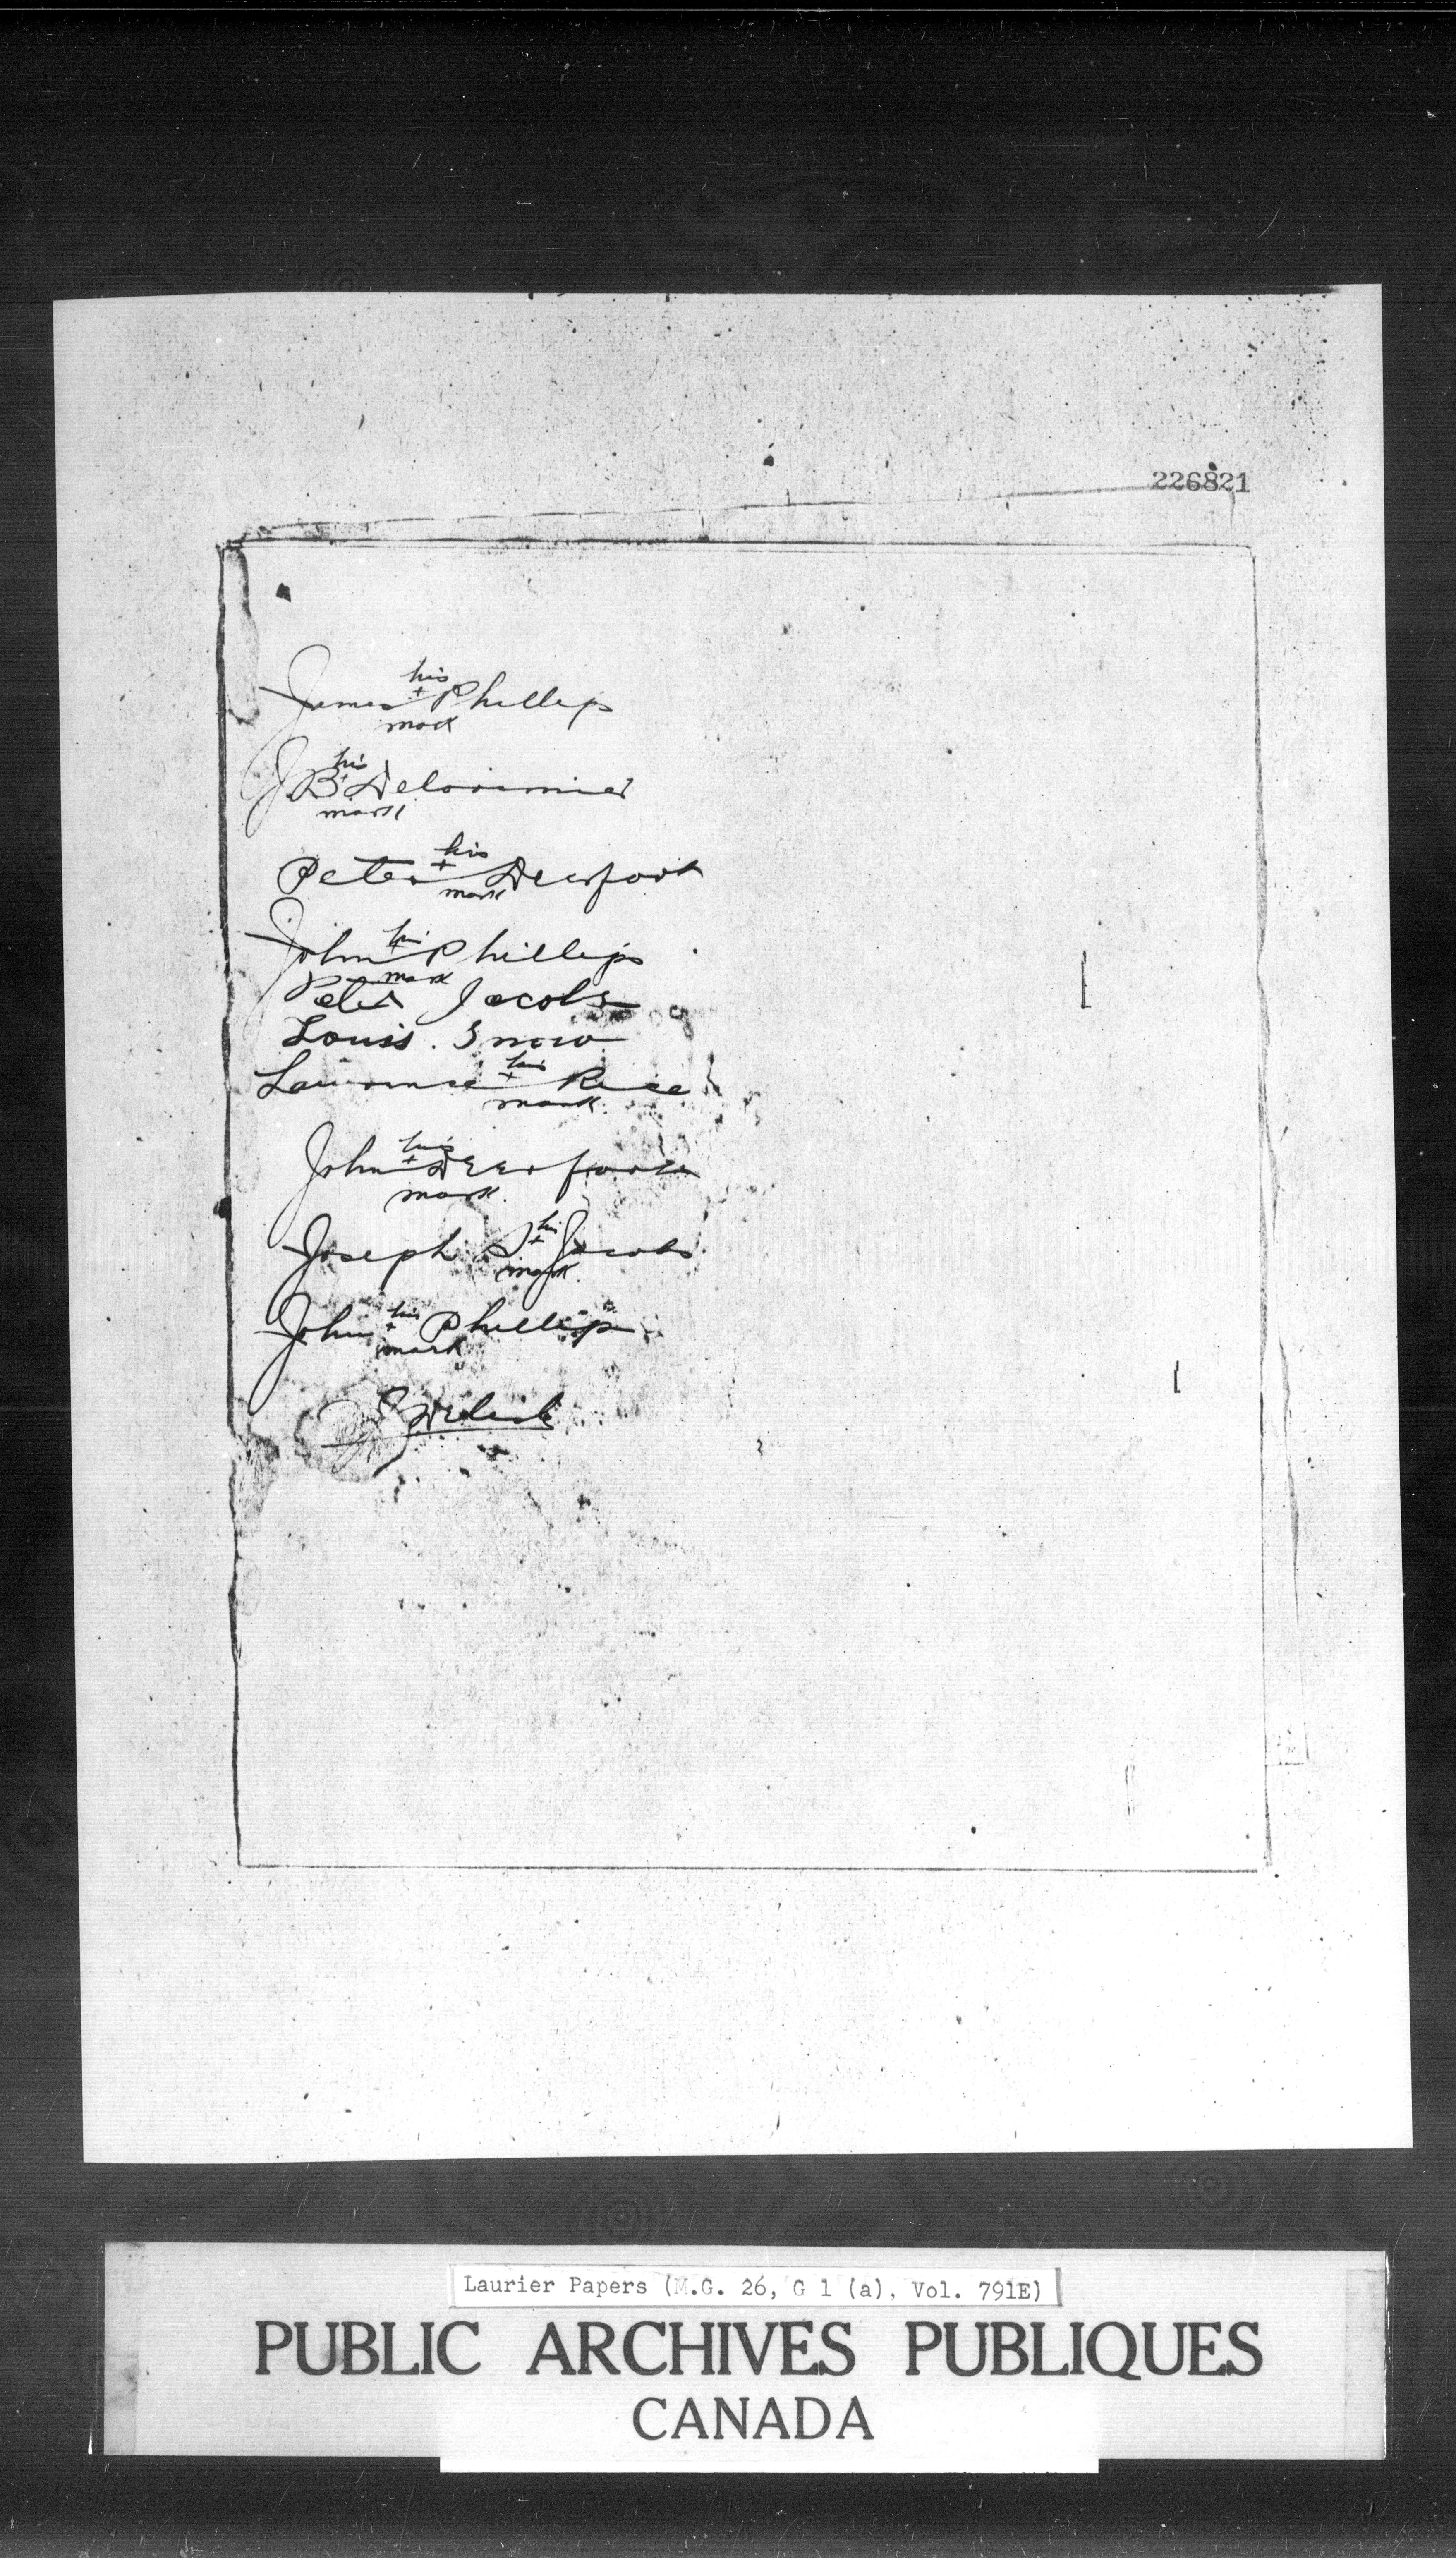 226821
his
James + Phillips
mark
his
J. B + Delorimier
mark
his
Peter + Deerfoot
mark
his
John + Phillips
mark
Peter Jacobs
Louis. Snow
his
Lawrence + Rice
mark.
his
John + Deerfoot
mark.
his
Joseph + Jacobs
mark.
his
John + Phillips
mark
Laurier Papers (M.G. 26, G 1 (a), Vol. 791E)
PUBLIC ARCHIVES PUBLIQUES
CANADA